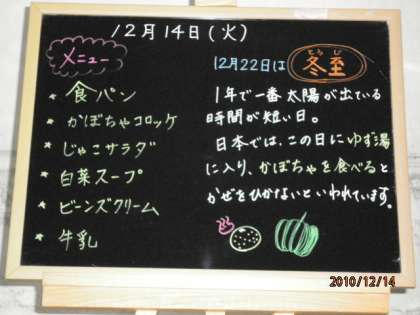 12月14日(火)
メニュー
* 食パン
* かぼちゃコロッケ
* じゃこサラダ
* 白菜スープ
* ビーンズクリーム
* 牛乳
12月22日は 冬至
とうじ
1年で一番太陽が出ている
時間が短い日。
日本では、この日にゆず湯
に入り、かぼちゃを食べると
かぜをひかないといわれています。
2010/12/14